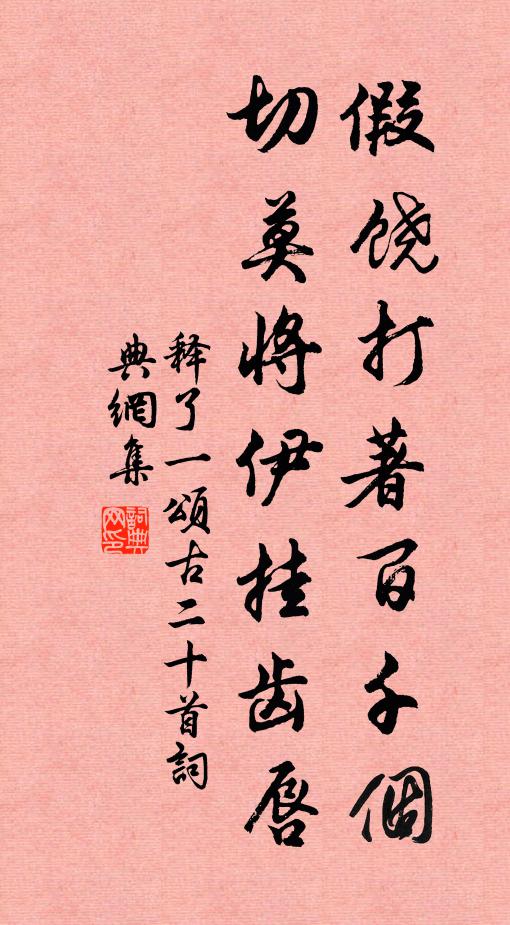 假饶打著百千個
切莫將伊挂齿唇
释了一頌古二十首詞
典網集
詞典
网印